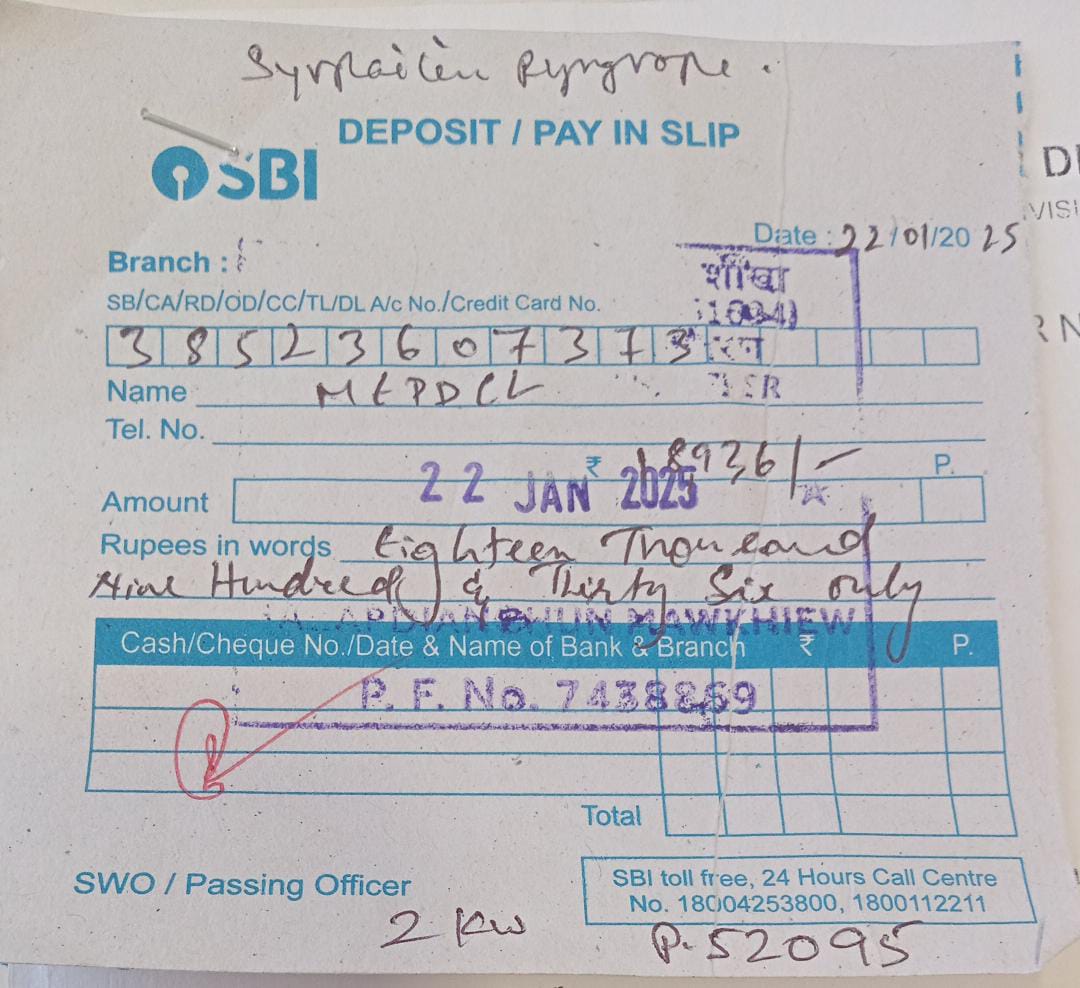 Pyngrope.
DEPOSIT / PAY IN SLIP
SBI
Date : 22/01/2025
Branch :
शाखा
SB/CA/RD/OD/CC/TL/DL A/c No./Credit Card No.
38523607373
Name MEPDCL
Tel. No.
₹ 18936/- P.
Amount
22 JAN 2025
Rupees in words Eighteen Thousand
Nine Hundred & Thirty Six only
MAWKHIEW
Cash/Cheque No./Date & Name of Bank & Branch ₹ P.
P. F. No. 7438869
Total
SWO / Passing Officer
SBI toll free, 24 Hours Call Centre
No. 18004253800, 1800112211
2 KW
P-52095